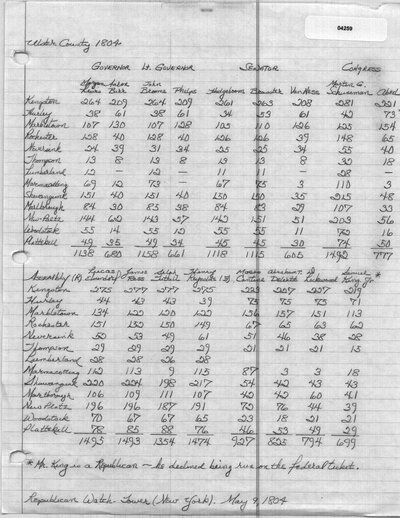 04259
Ulster County 1804
Governor Lt. Governor Senator Congress
Morgan Lewis Aaron Burr John Broome Phelps Hedgeboom Brewster Van Ness G. Schuneman
Kingston 264 209 264 209 261 263 208 281 221
Hurley 38 61 38 61 34 53 61 42 73
Marbletown 107 130 107 128 105 110 126 125 154
Rochester 128 40 128 40 126 126 39 148 65
Neversink 24 39 31 34 25 25 34 55 40
Thompson 13 8 13 8 13 13 8 32 18
Lumberland 12 — 12 — 11 11 — 28 —
Mamacating 69 12 73 — 67 75 3 110 3
Shawangunk 151 40 151 40 150 150 35 205 48
Marlborough 84 30 85 38 84 83 29 107 33
New Paltz 144 62 143 57 142 151 51 203 56
Woodstock 55 14 55 12 55 55 11 72 16
Plattekill 49 35 49 34 45 45 30 74 50
1138 680 1158 661 1118 1115 605 1492 777
Assembly (R) Lucas Elmendorf James Ross Henry
Kingston 275 277 277 275 223 207 227 219
Hurley 44 43 43 39 75 75 75 71
Marbletown 134 122 120 122 156 157 151 113
Rochester 151 152 150 149 67 65 63 62
Neversink 52 53 49 61 51 46 38 28
Thompson 29 29 29 29 21 21 21 15
Lumberland 28 28 26 28
Mamacating 112 113 9 115 87 3 3 18
Shawangunk 220 224 198 217 54 42 43 43
Marlborough 106 109 111 107 42 42 60 41
New Paltz 196 196 187 191 72 76 44 39
Woodstock 70 67 67 65 23 18 21 21
Plattekill 78 85 88 76 46 53 49 29
1495 1493 1354 1474 927 825 794 699
*Mr. King is a Republican — he declined being run on the federal ticket.
Republican Watch-Tower (New York). May 9, 1804